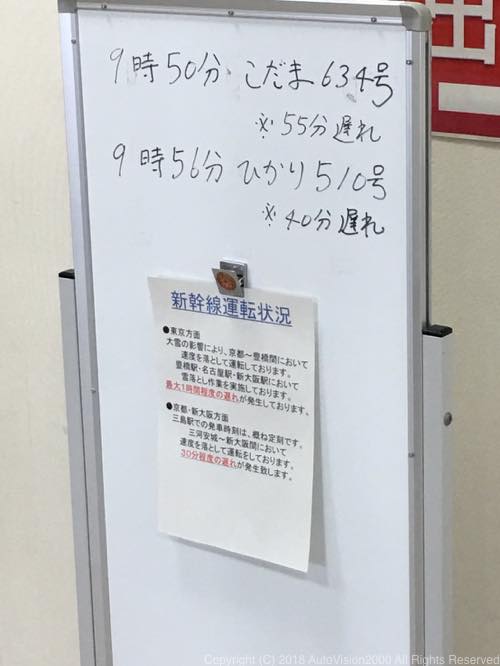 出
9時50分 こだま634号
※55分遅れ
9時56分 ひかり510号
※40分遅れ
新幹線運転状況
●東京方面
大雪の影響により、京都～豊橋間において
速度を落として運転しております。
豊橋駅・名古屋駅・新大阪駅において
雪落とし作業を実施しております。
最大1時間程度の遅れが発生しております。
●京都・新大阪方面
三島駅での発車時刻は、概ね定刻です。
三河安城～新大阪間において
速度を落として運転をしております。
30分程度の遅れが発生致します。
Copyright (C) 2018 AutoVision2000 All Rights Reserved